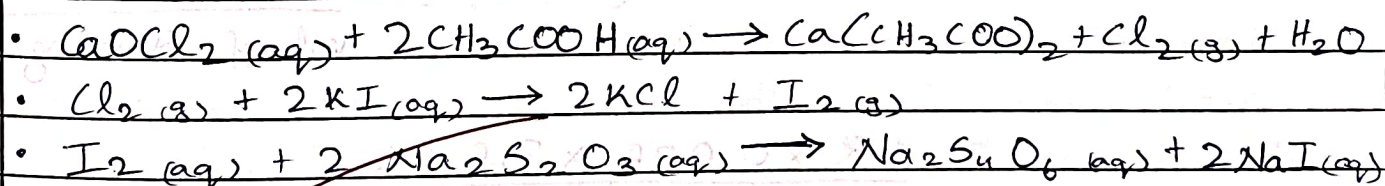 • CaOCl₂ (aq) + 2CH₃COOH(aq) → Ca(CH₃COO)₂ + Cl₂ (g) + H₂O
• Cl₂ (g) + 2KI(aq) → 2KCl + I₂ (g)
• I₂ (aq) + 2 Na₂S₂O₃ (aq) → Na₂S₄O₆ (aq) + 2NaI(aq)